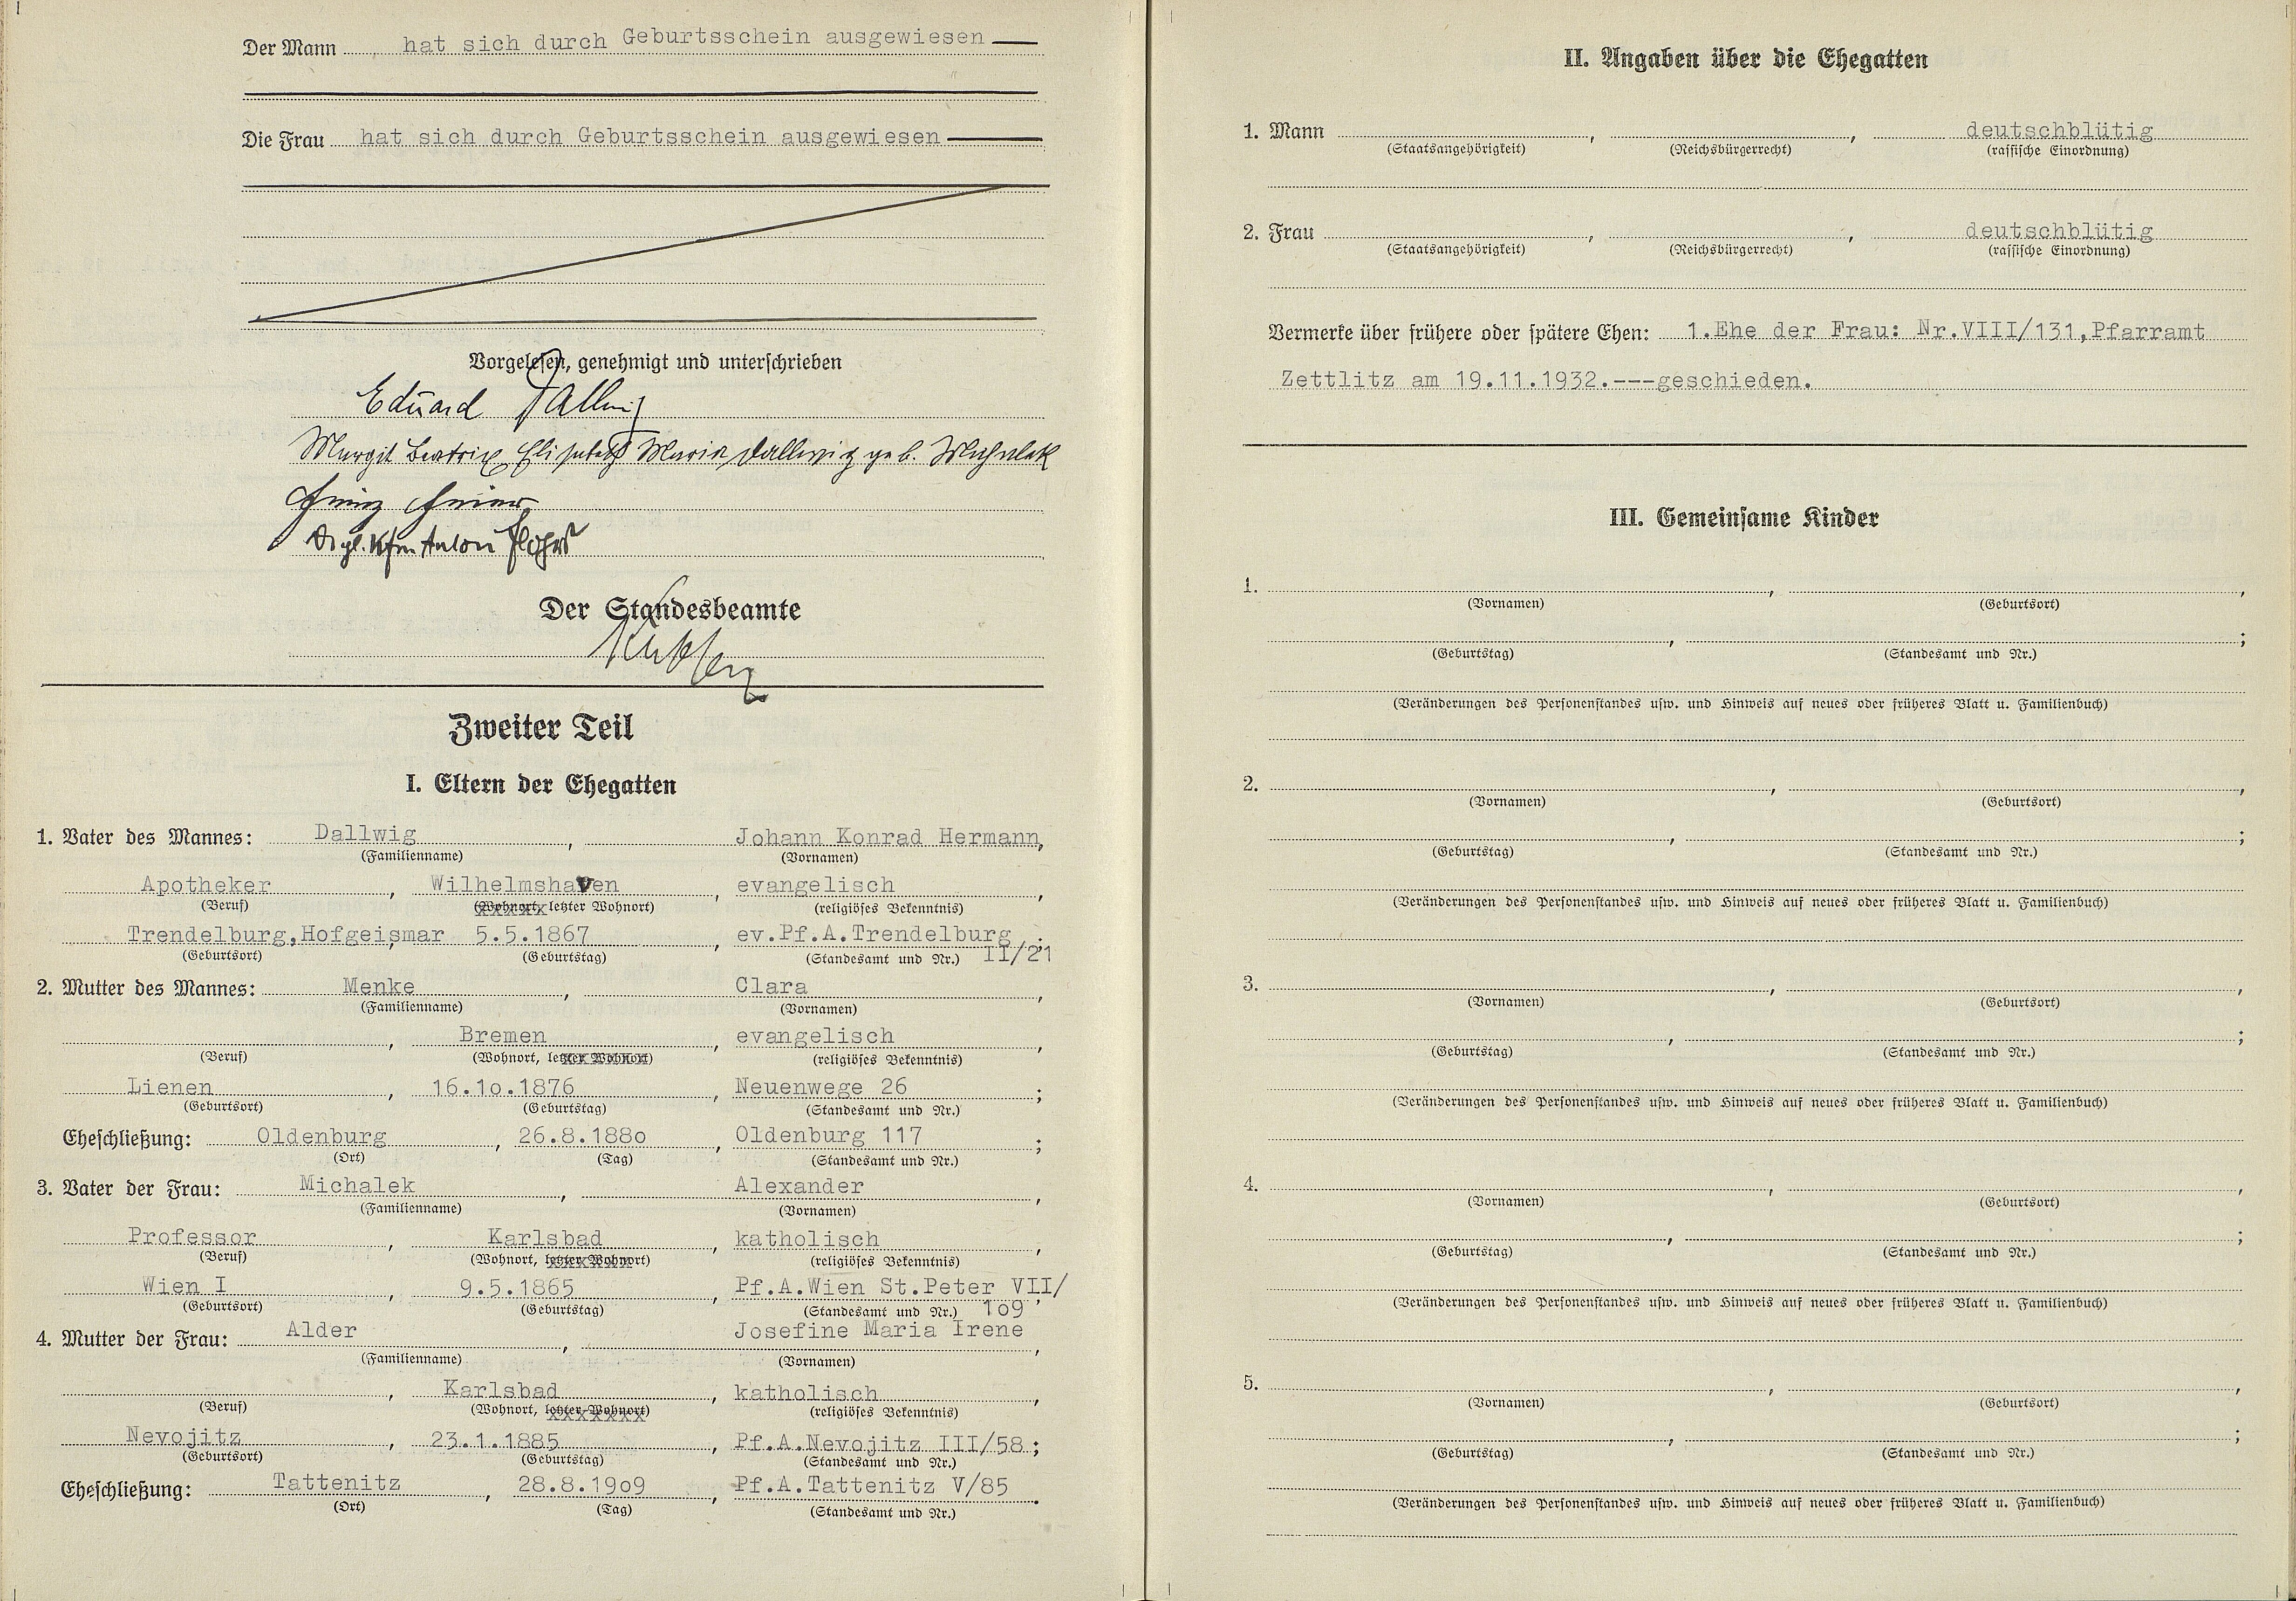 Der Mann hat sich durch Geburtsschein ausgewiesen
Die Frau hat sich durch Geburtsschein ausgewiesen
Vorgelesen, genehmigt und unterschrieben
Eduard Dallwig
Margit Beatrix Elisabeth Maria Dallwig geb. Michalek
Dipl. Kfm Anton
Der Standesbeamte
Zweiter Teil
I. Eltern der Ehegatten
1. Vater des Mannes: Dallwig, Johann Konrad Hermann,
(Familienname) (Vornamen)
Apotheker, Wilhelmshaven, evangelisch,
(Beruf) (Wohnort, letzter Wohnort) (religiöses Bekenntnis)
Trendelburg,Hofgeismar, 5.5.1867, ev.Pf.A.Trendelburg;
(Geburtsort) (Geburtstag) (Standesamt und Nr.) II/21
2. Mutter des Mannes: Menke, Clara,
(Familienname) (Vornamen)
, Bremen, evangelisch,
(Beruf) (Wohnort, letzter Wohnort) (religiöses Bekenntnis)
Lienen, 16.1o.1876, Neuenwege 26;
(Geburtsort) (Geburtstag) (Standesamt und Nr.)
Eheschließung: Oldenburg, 26.8.188o, Oldenburg 117;
(Ort) (Tag) (Standesamt und Nr.)
3. Vater der Frau: Michalek, Alexander,
(Familienname) (Vornamen)
Professor, Karlsbad, katholisch,
(Beruf) (Wohnort, letzter Wohnort) (religiöses Bekenntnis)
Wien I, 9.5.1865, Pf.A.Wien St.Peter VII/
(Geburtsort) (Geburtstag) (Standesamt und Nr.) 1o9;
4. Mutter der Frau: Alder, Josefine Maria Irene,
(Familienname) (Vornamen)
, Karlsbad, katholisch,
(Beruf) (Wohnort, letzter Wohnort) (religiöses Bekenntnis)
Nevojitz, 23.1.1885, Pf.A.Nevojitz III/58;
(Geburtsort) (Geburtstag) (Standesamt und Nr.)
Eheschließung: Tattenitz, 28.8.19o9, Pf.A.Tattenitz V/85.
(Ort) (Tag) (Standesamt und Nr.)
II. Angaben über die Ehegatten
1. Mann , , deutschblütig
(Staatsangehörigkeit) (Reichsbürgerrecht) (rassische Einordnung)
2. Frau , , deutschblütig
(Staatsangehörigkeit) (Reichsbürgerrecht) (rassische Einordnung)
Vermerke über frühere oder spätere Ehen: 1.Ehe der Frau: Nr.VIII/131,Pfarramt
Zettlitz am 19.11.1932.---geschieden.
III. Gemeinsame Kinder
1. , ,
(Vornamen) (Geburtsort)
, ;
(Geburtstag) (Standesamt und Nr.)
(Veränderungen des Personenstandes usw. und Hinweis auf neues oder früheres Blatt u. Familienbuch)
2. , ,
(Vornamen) (Geburtsort)
, ;
(Geburtstag) (Standesamt und Nr.)
(Veränderungen des Personenstandes usw. und Hinweis auf neues oder früheres Blatt u. Familienbuch)
3. , ,
(Vornamen) (Geburtsort)
, ;
(Geburtstag) (Standesamt und Nr.)
(Veränderungen des Personenstandes usw. und Hinweis auf neues oder früheres Blatt u. Familienbuch)
4. , ,
(Vornamen) (Geburtsort)
, ;
(Geburtstag) (Standesamt und Nr.)
(Veränderungen des Personenstandes usw. und Hinweis auf neues oder früheres Blatt u. Familienbuch)
5. , ,
(Vornamen) (Geburtsort)
, ;
(Geburtstag) (Standesamt und Nr.)
(Veränderungen des Personenstandes usw. und Hinweis auf neues oder früheres Blatt u. Familienbuch)